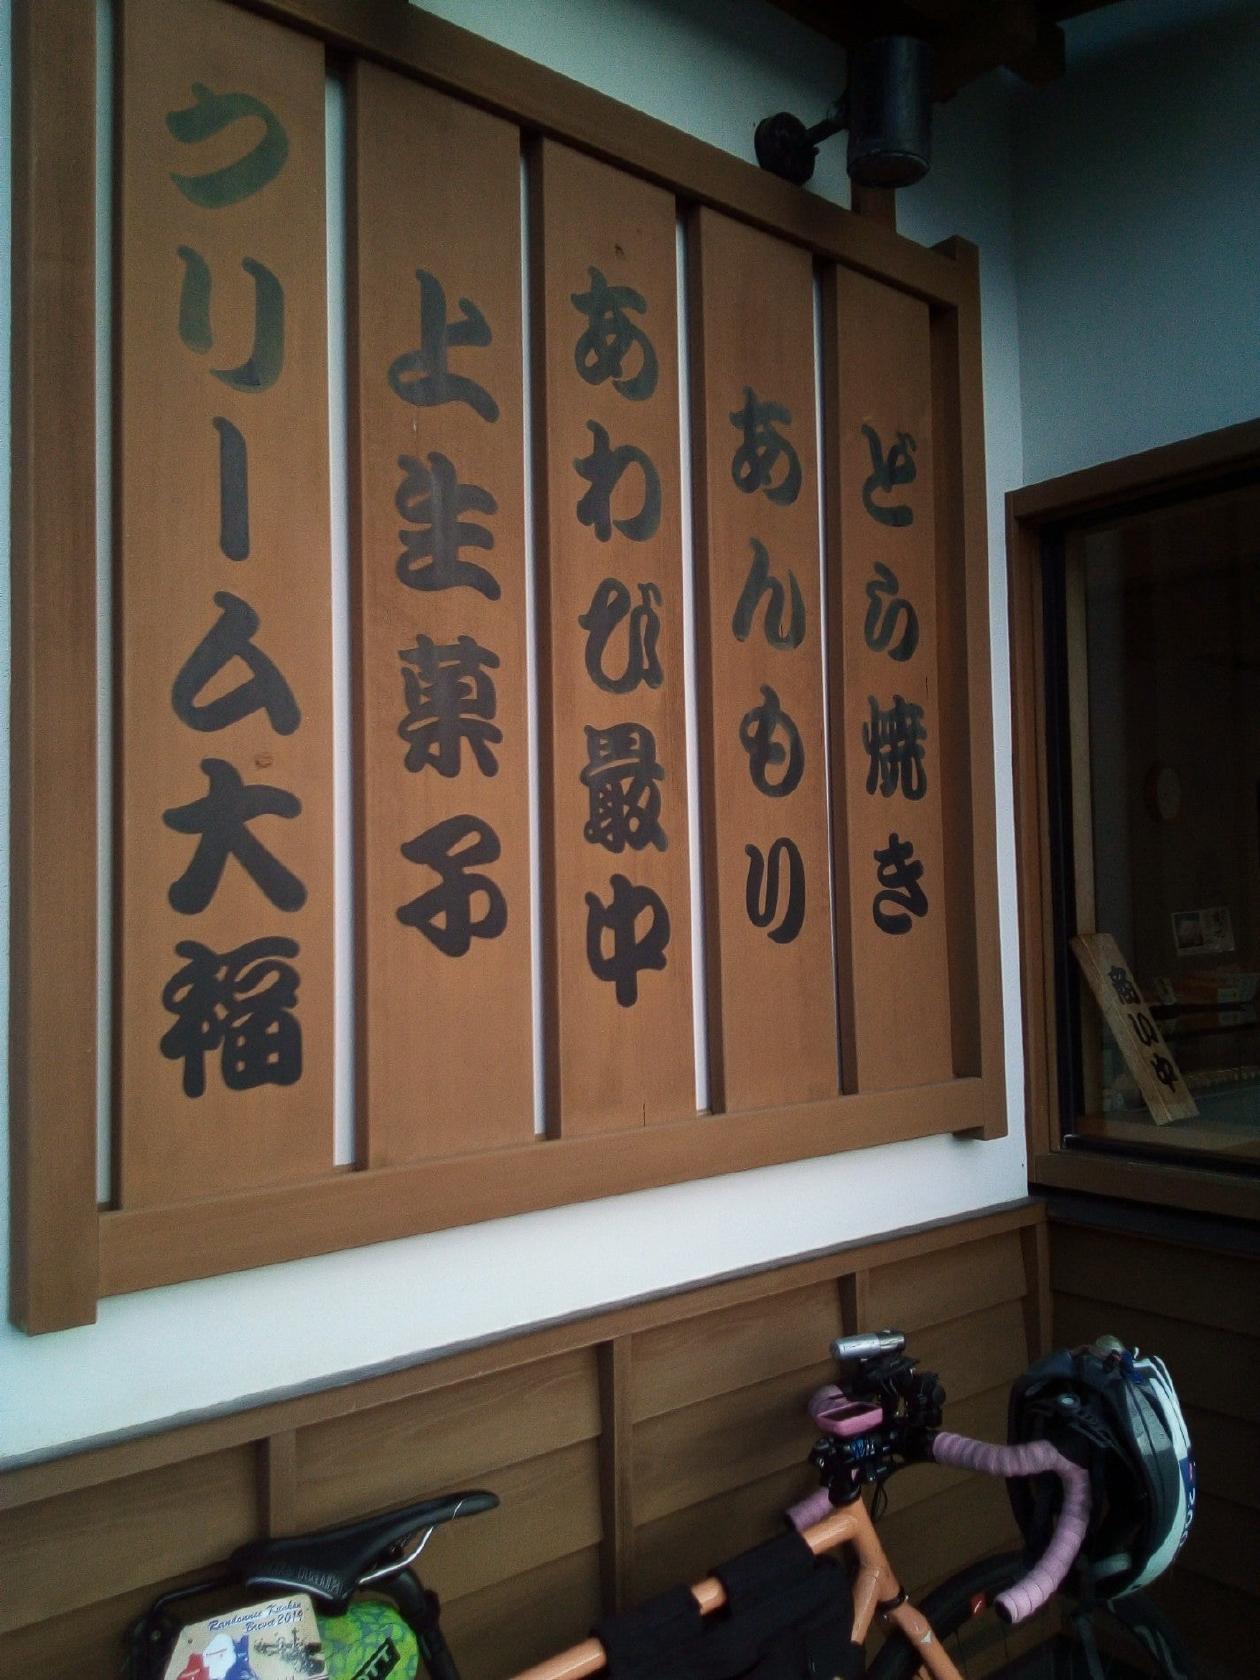 どら焼き
あんもり
あわび最中
上生菓子
クリーム大福
Randonnee Kitakan
Brevet 2019